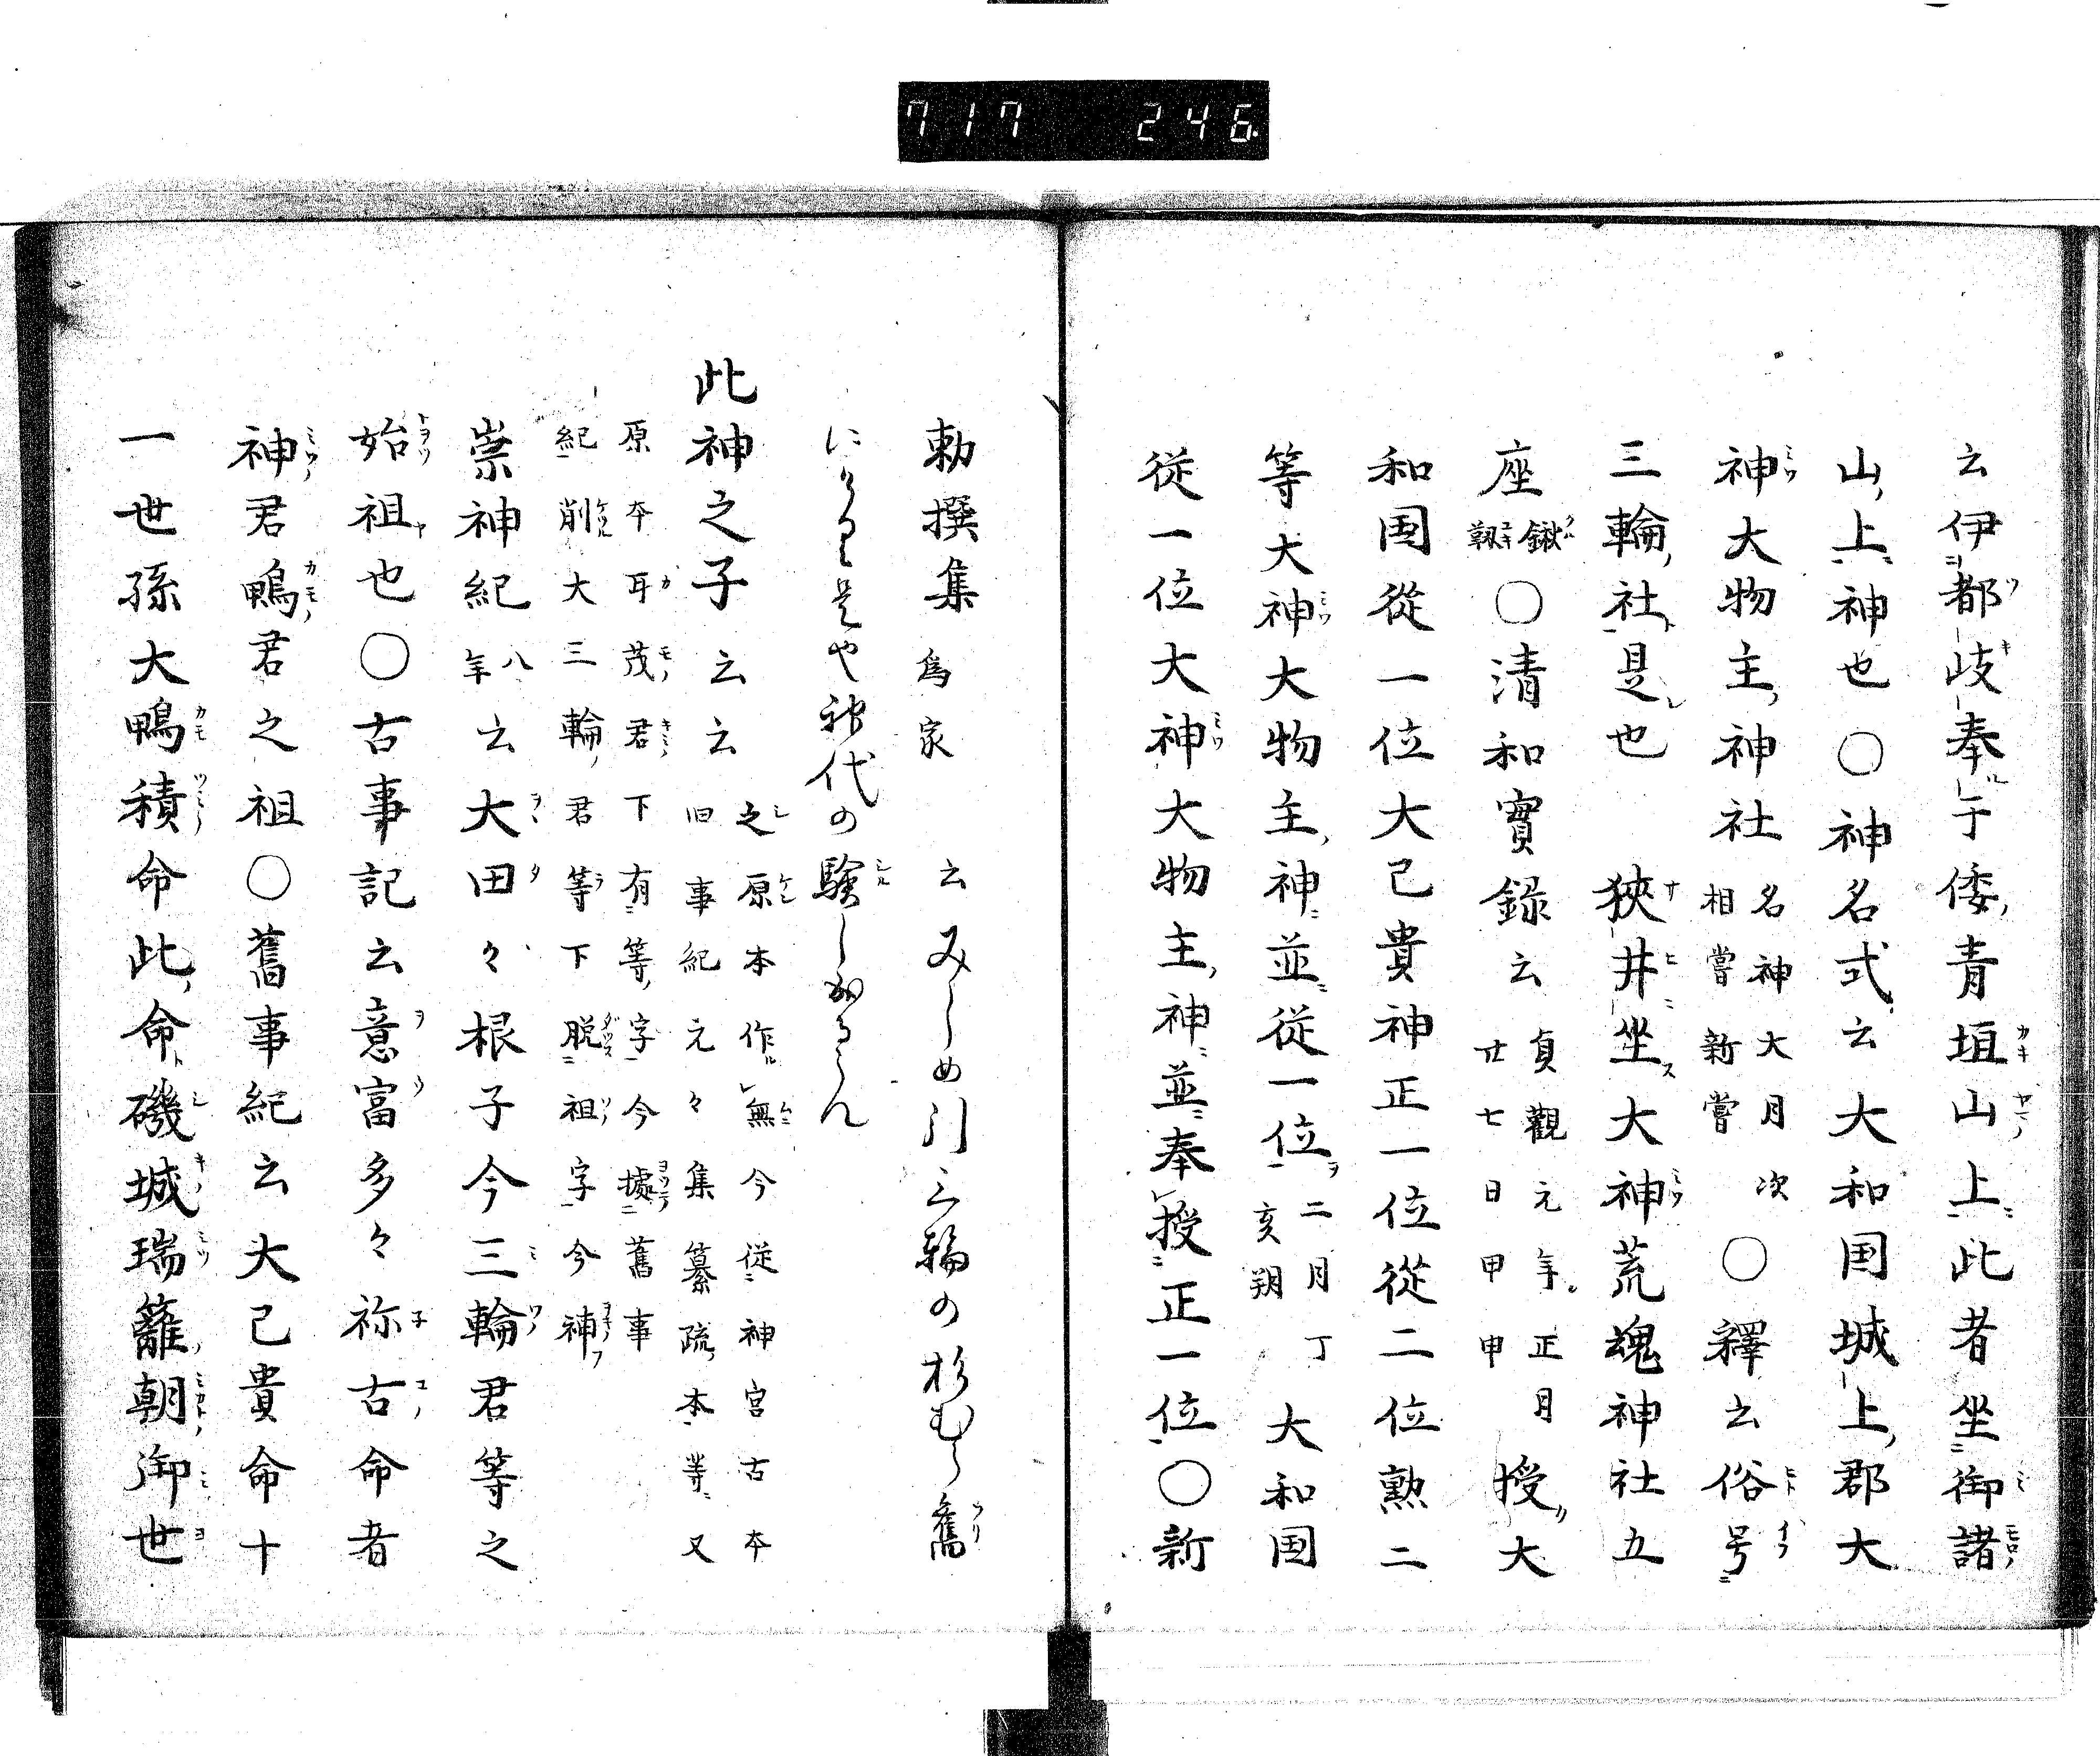 717 246
云伊都岐奉于倭青垣山上此者坐御諸
山上神也〇神名式云大和国城上郡大
神大物主神社 名神大月次
相嘗新嘗 〇釋云俗号
三輪社是也 狹井坐大神荒魂神社五
座 鍬
靱 〇清和實録云 貞觀元年正月
廿七日甲申 授大
和国從一位大己貴神正一位從二位勲二
等大神大物主神並從一位 二月丁
亥朔 大和国
從一位大神大物主神並奉授正一位〇新
勅撰集 爲家 云みしめ引三輪の杉むら舊
にけり是や神代の験しなるらん
此神之子云云 之原本作無今從神宮古本
旧事紀元々集纂疏本等又
原本耳茂君下有等字今據舊事
紀削大三輪君等下脱祖字今神
崇神紀 八
年 云大田々根子今三輪君等之
始祖也〇古事記云意富多々祢古命者
神君鴨君之祖〇舊事紀云大己貴命十
一世孫大鴨積命此命磯城瑞籬朝御世